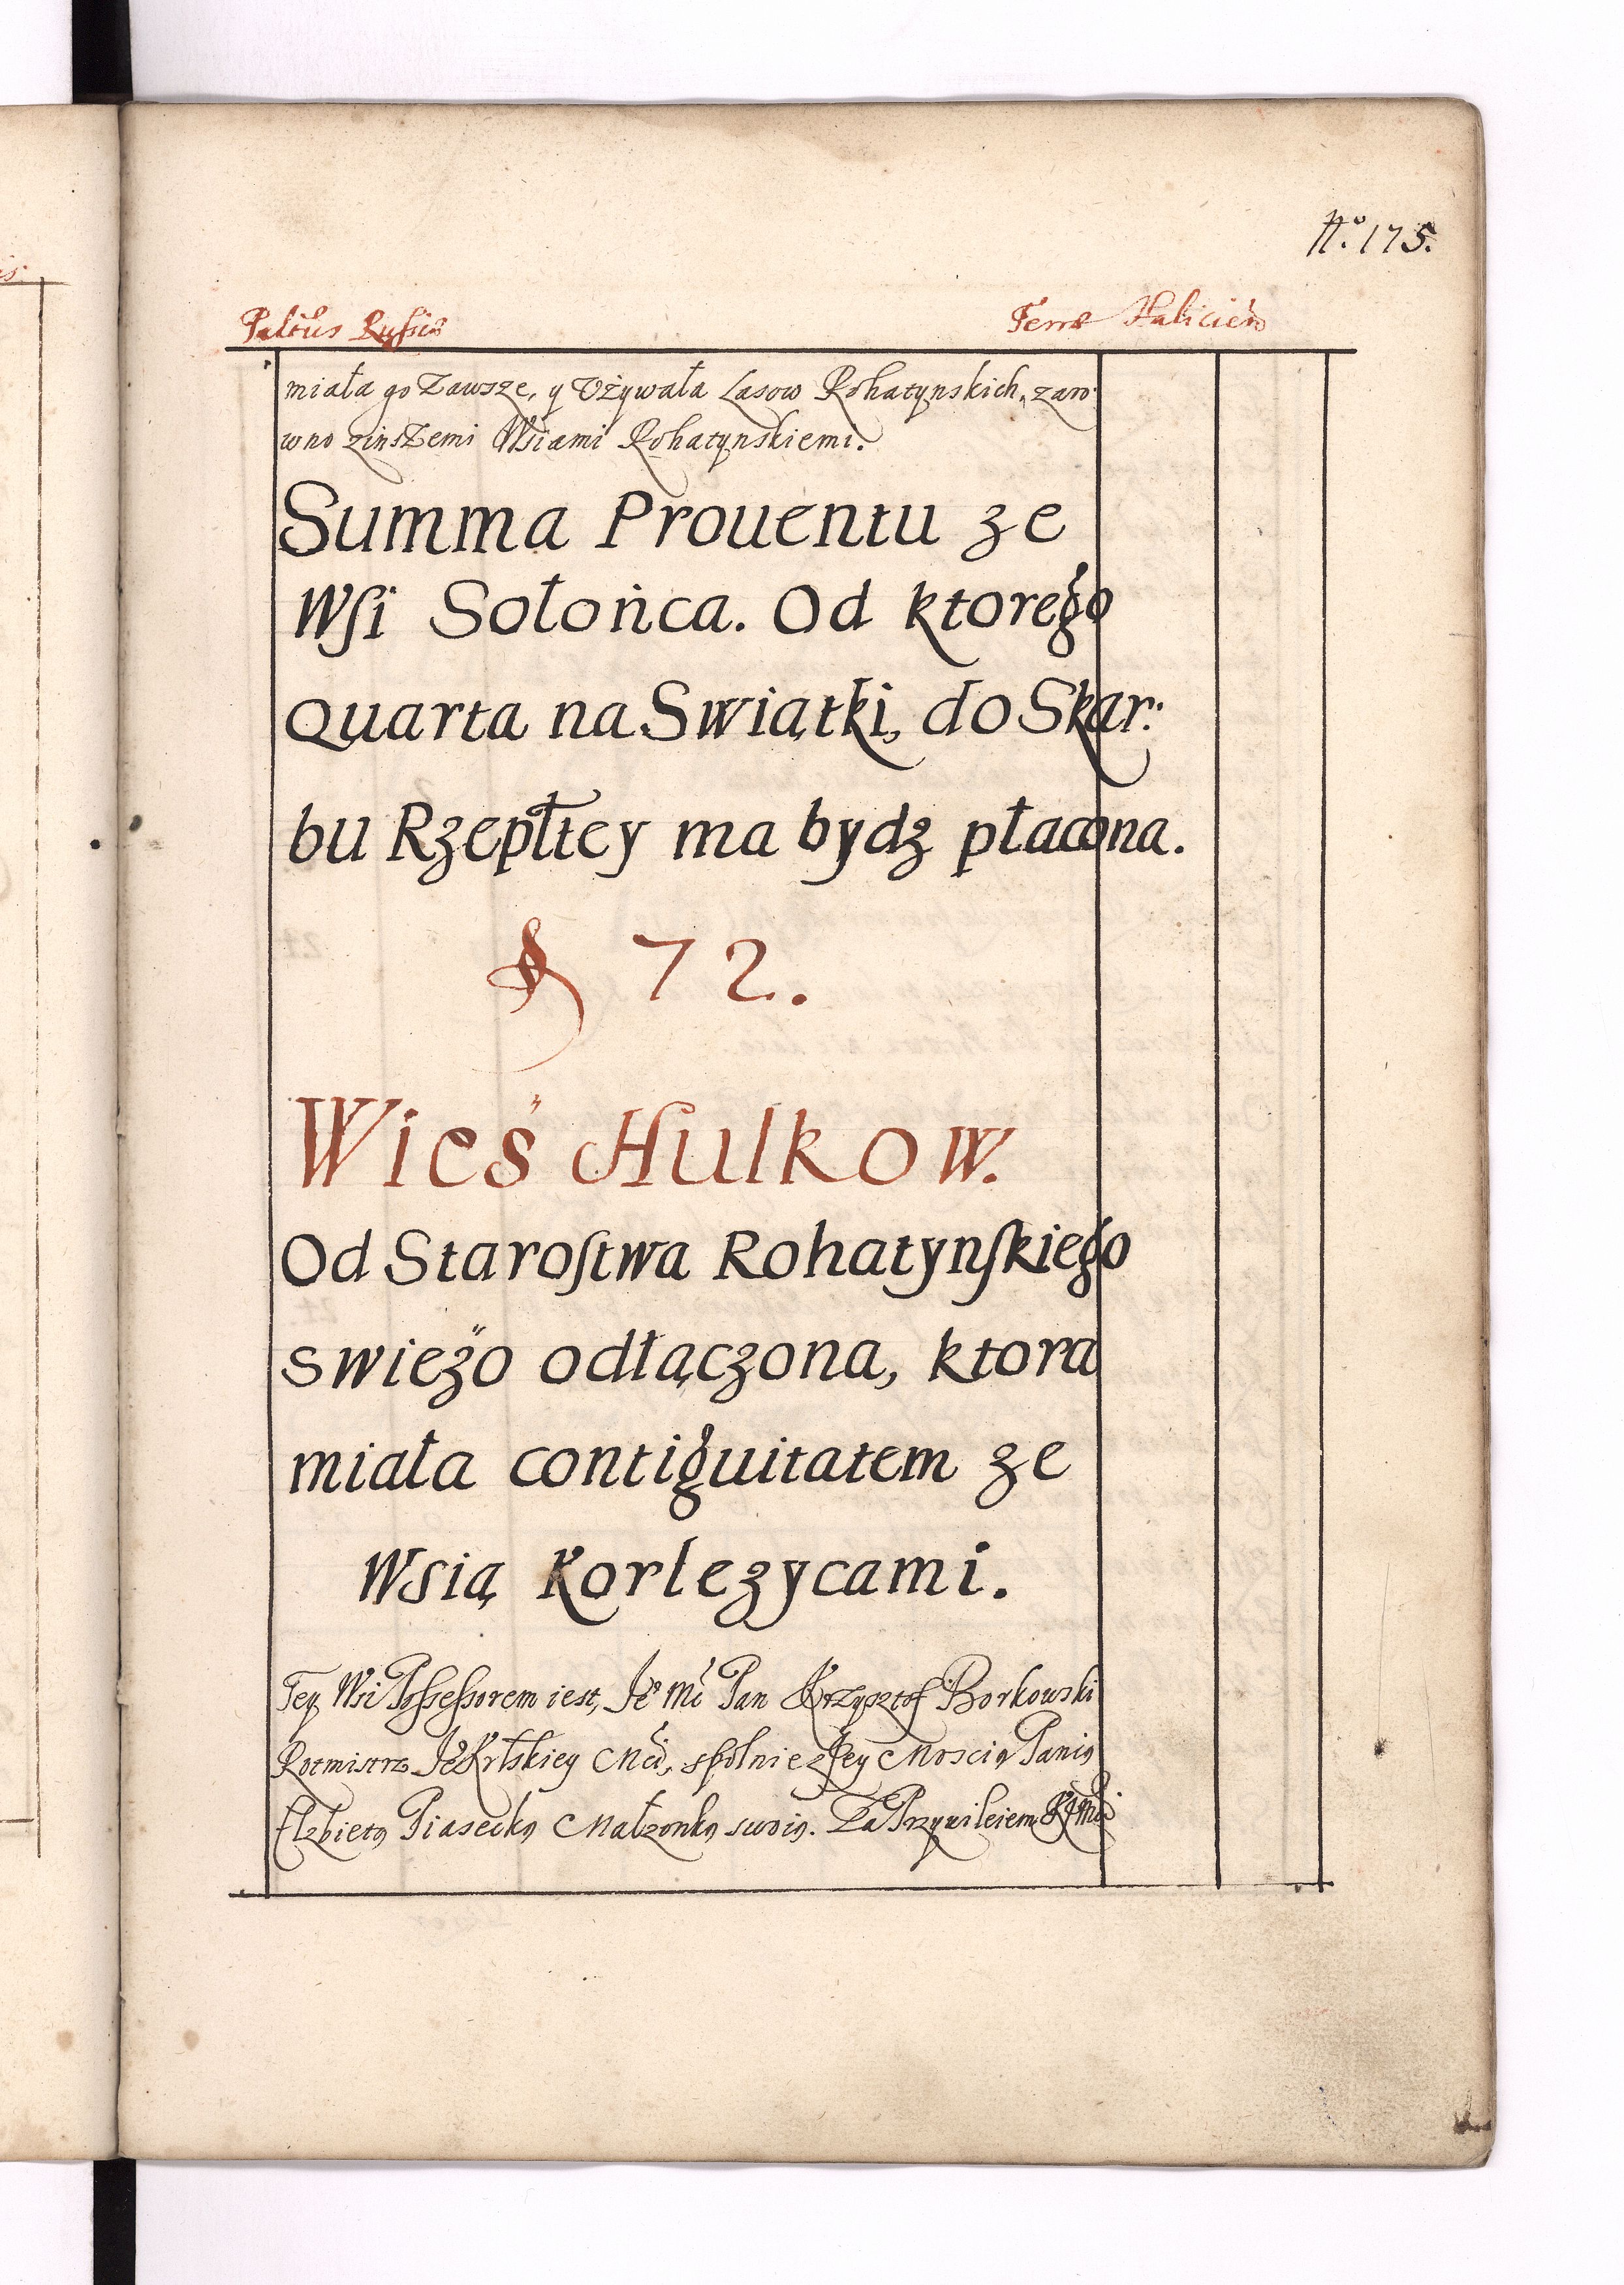 No. 175.
Palтus Russiæ Terræ Halicień
miała go Zawsze, y Vżywała Lasow Rohatynskich, zaro-
wno zinszemi Wsiami Rohatynskiemi.
Summa Prouentu ze
Wsi Sołońca. Od ktorego
Quarta na Swiątki, do Skar:
bu Rzepltey ma bydz płacona.
§ 72.
Wieś Hulkow.
Od Starostwa Rohatynskiego
swieżo odłączona, ktora
miała contiguitatem ze
Wsią Korlezycami.
Tey Wsi Possessorem iest, Je° Mć Pan Krzysztof Borkowski
Rotmistrz Je° Krlskiey Mći, spolnie z Jey Moscią Panią
Elzbietą Piasecką Małzonką swoią. Za Przywileiem